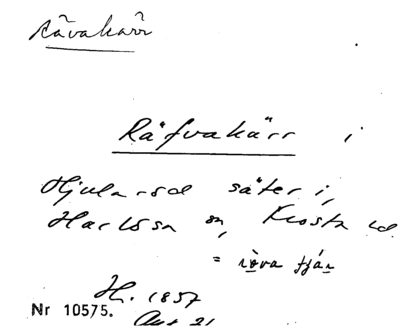 Rävakärr
Räfvakärr i
Hjularöd säteri,
Harlösa sn, Frosta hd
= rova tjär
H. 1857
Nr 10575. Avt 21